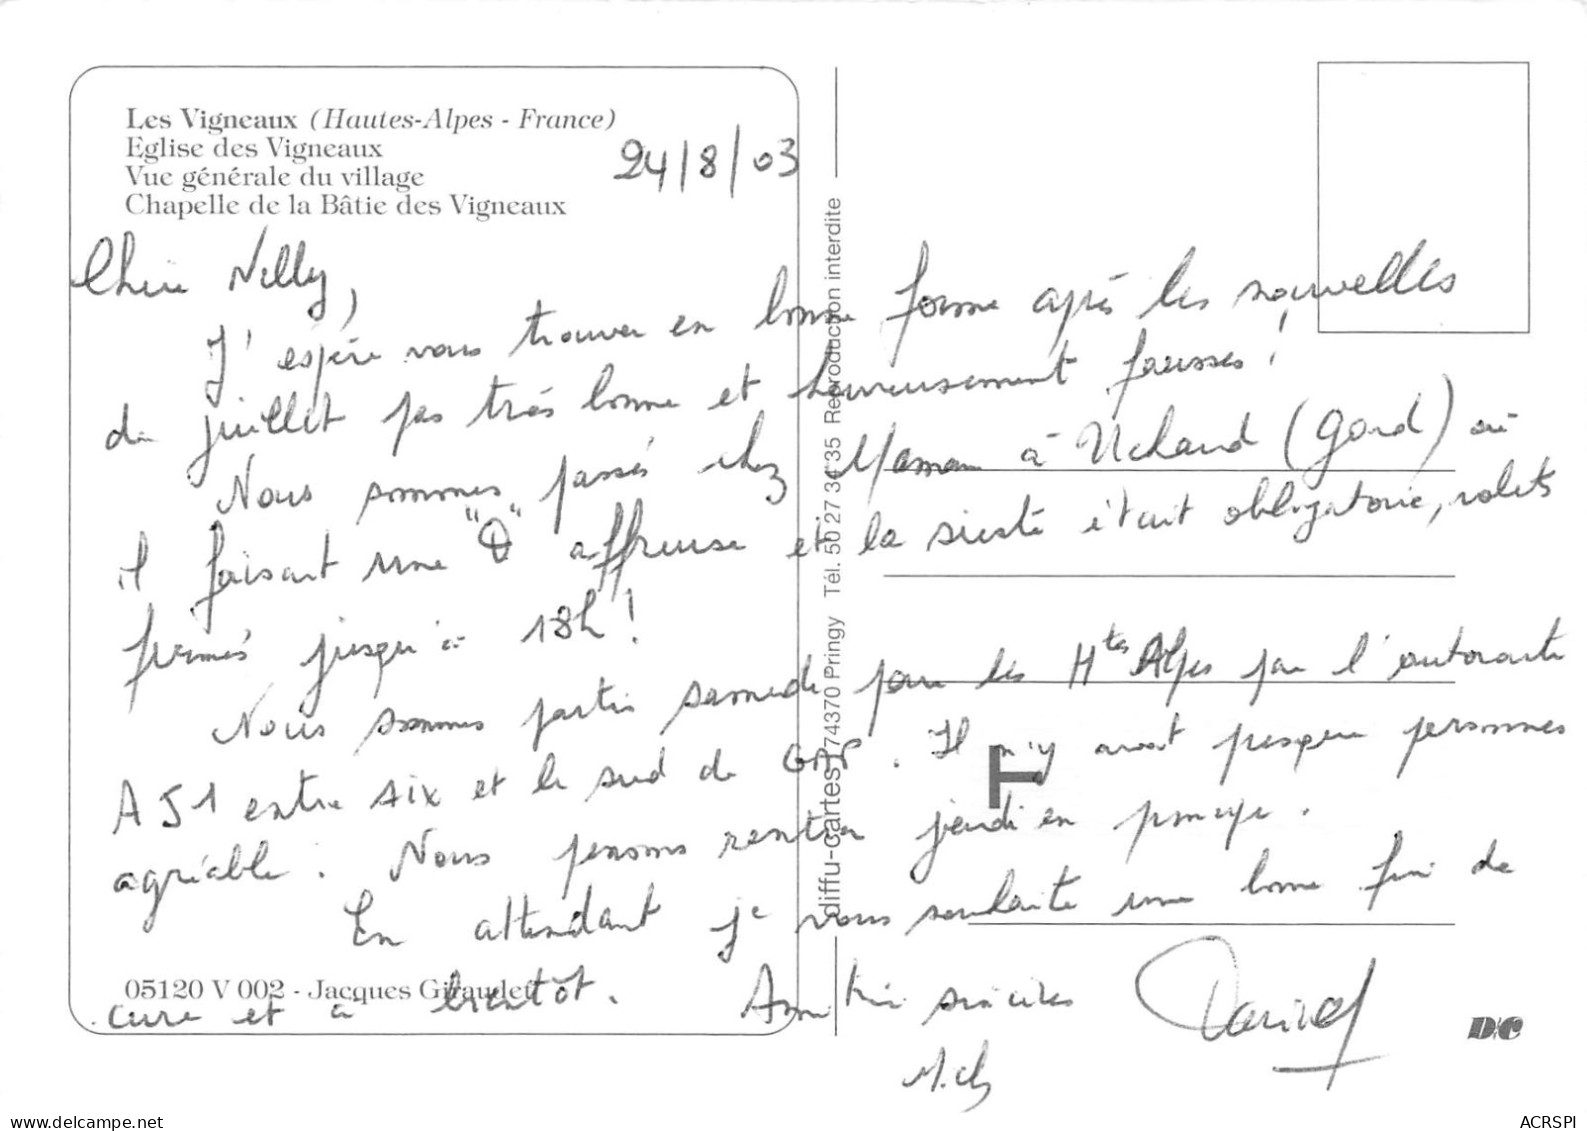 Les Vigneaux (Hautes-Alpes - France)
Eglise des Vigneaux
Vue générale du village
Chapelle de la Bâtie des Vigneaux
24/8/03
Chère Nelly,
J'espère vous trouver en bonne forme après les nouvelles
de juillet pas très bonne et heureusement fausses !
Nous sommes passés chez Maman à Uchaud (Gard) où
il faisait une "O" affreuse et la sieste était obligatoire, volets
fermés jusqu'à 18h !
Nous sommes partis samedi pour les Htes Alpes par l'autoroute
A51 entre Aix et le sud de GAP. Il n'y avait presque personnes
agréable. Nous pensons rentrer jeudi en principe.
En attendant je vous souhaite une bonne fin de
cure et à bientôt. Amitiés sincères
M.Ch
05120 V 002 - Jacques Giraudet
diffu-cartes 74370 Pringy Tél. 50 27 36 35 Reproduction interdite
T
D/C
ACRSPI